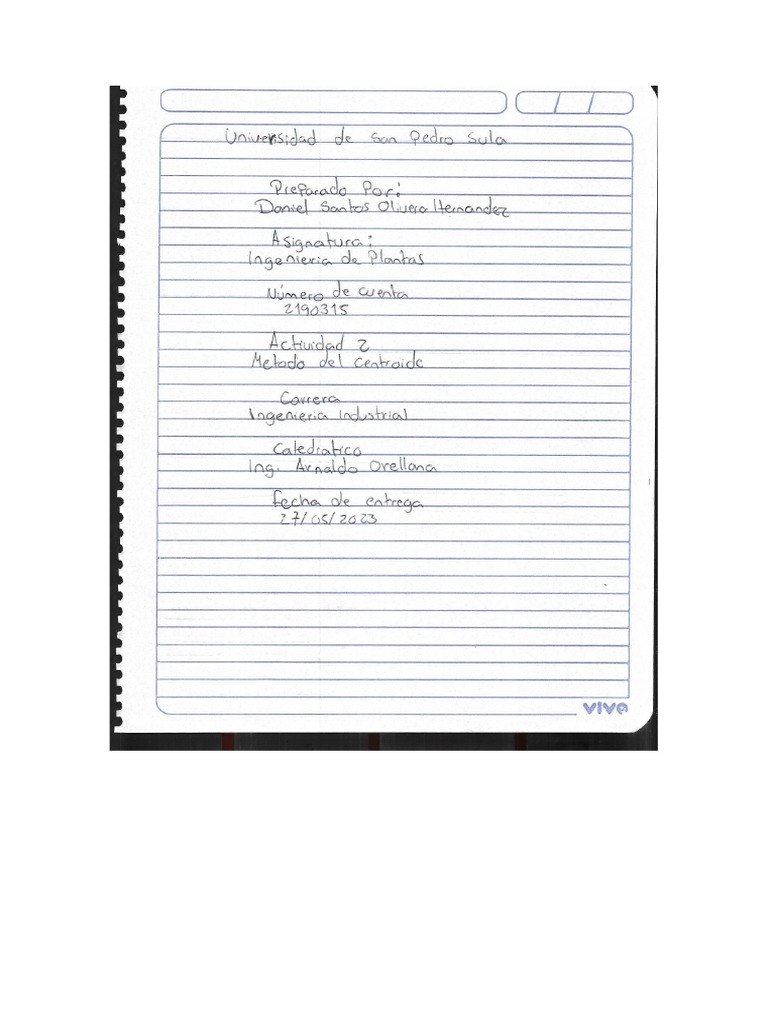 Universidad de San Pedro Sula
Preparado Por:
Daniel Santos Olivera Hernandez
Asignatura:
Ingenieria de Plantas
Número de cuenta
2190315
Actividad 2
Metodo del Centroide
Carrera
Ingenieria Industrial
Catedratico
Ing. Arnaldo Orellana
Fecha de entrega
27/05/2023
vive